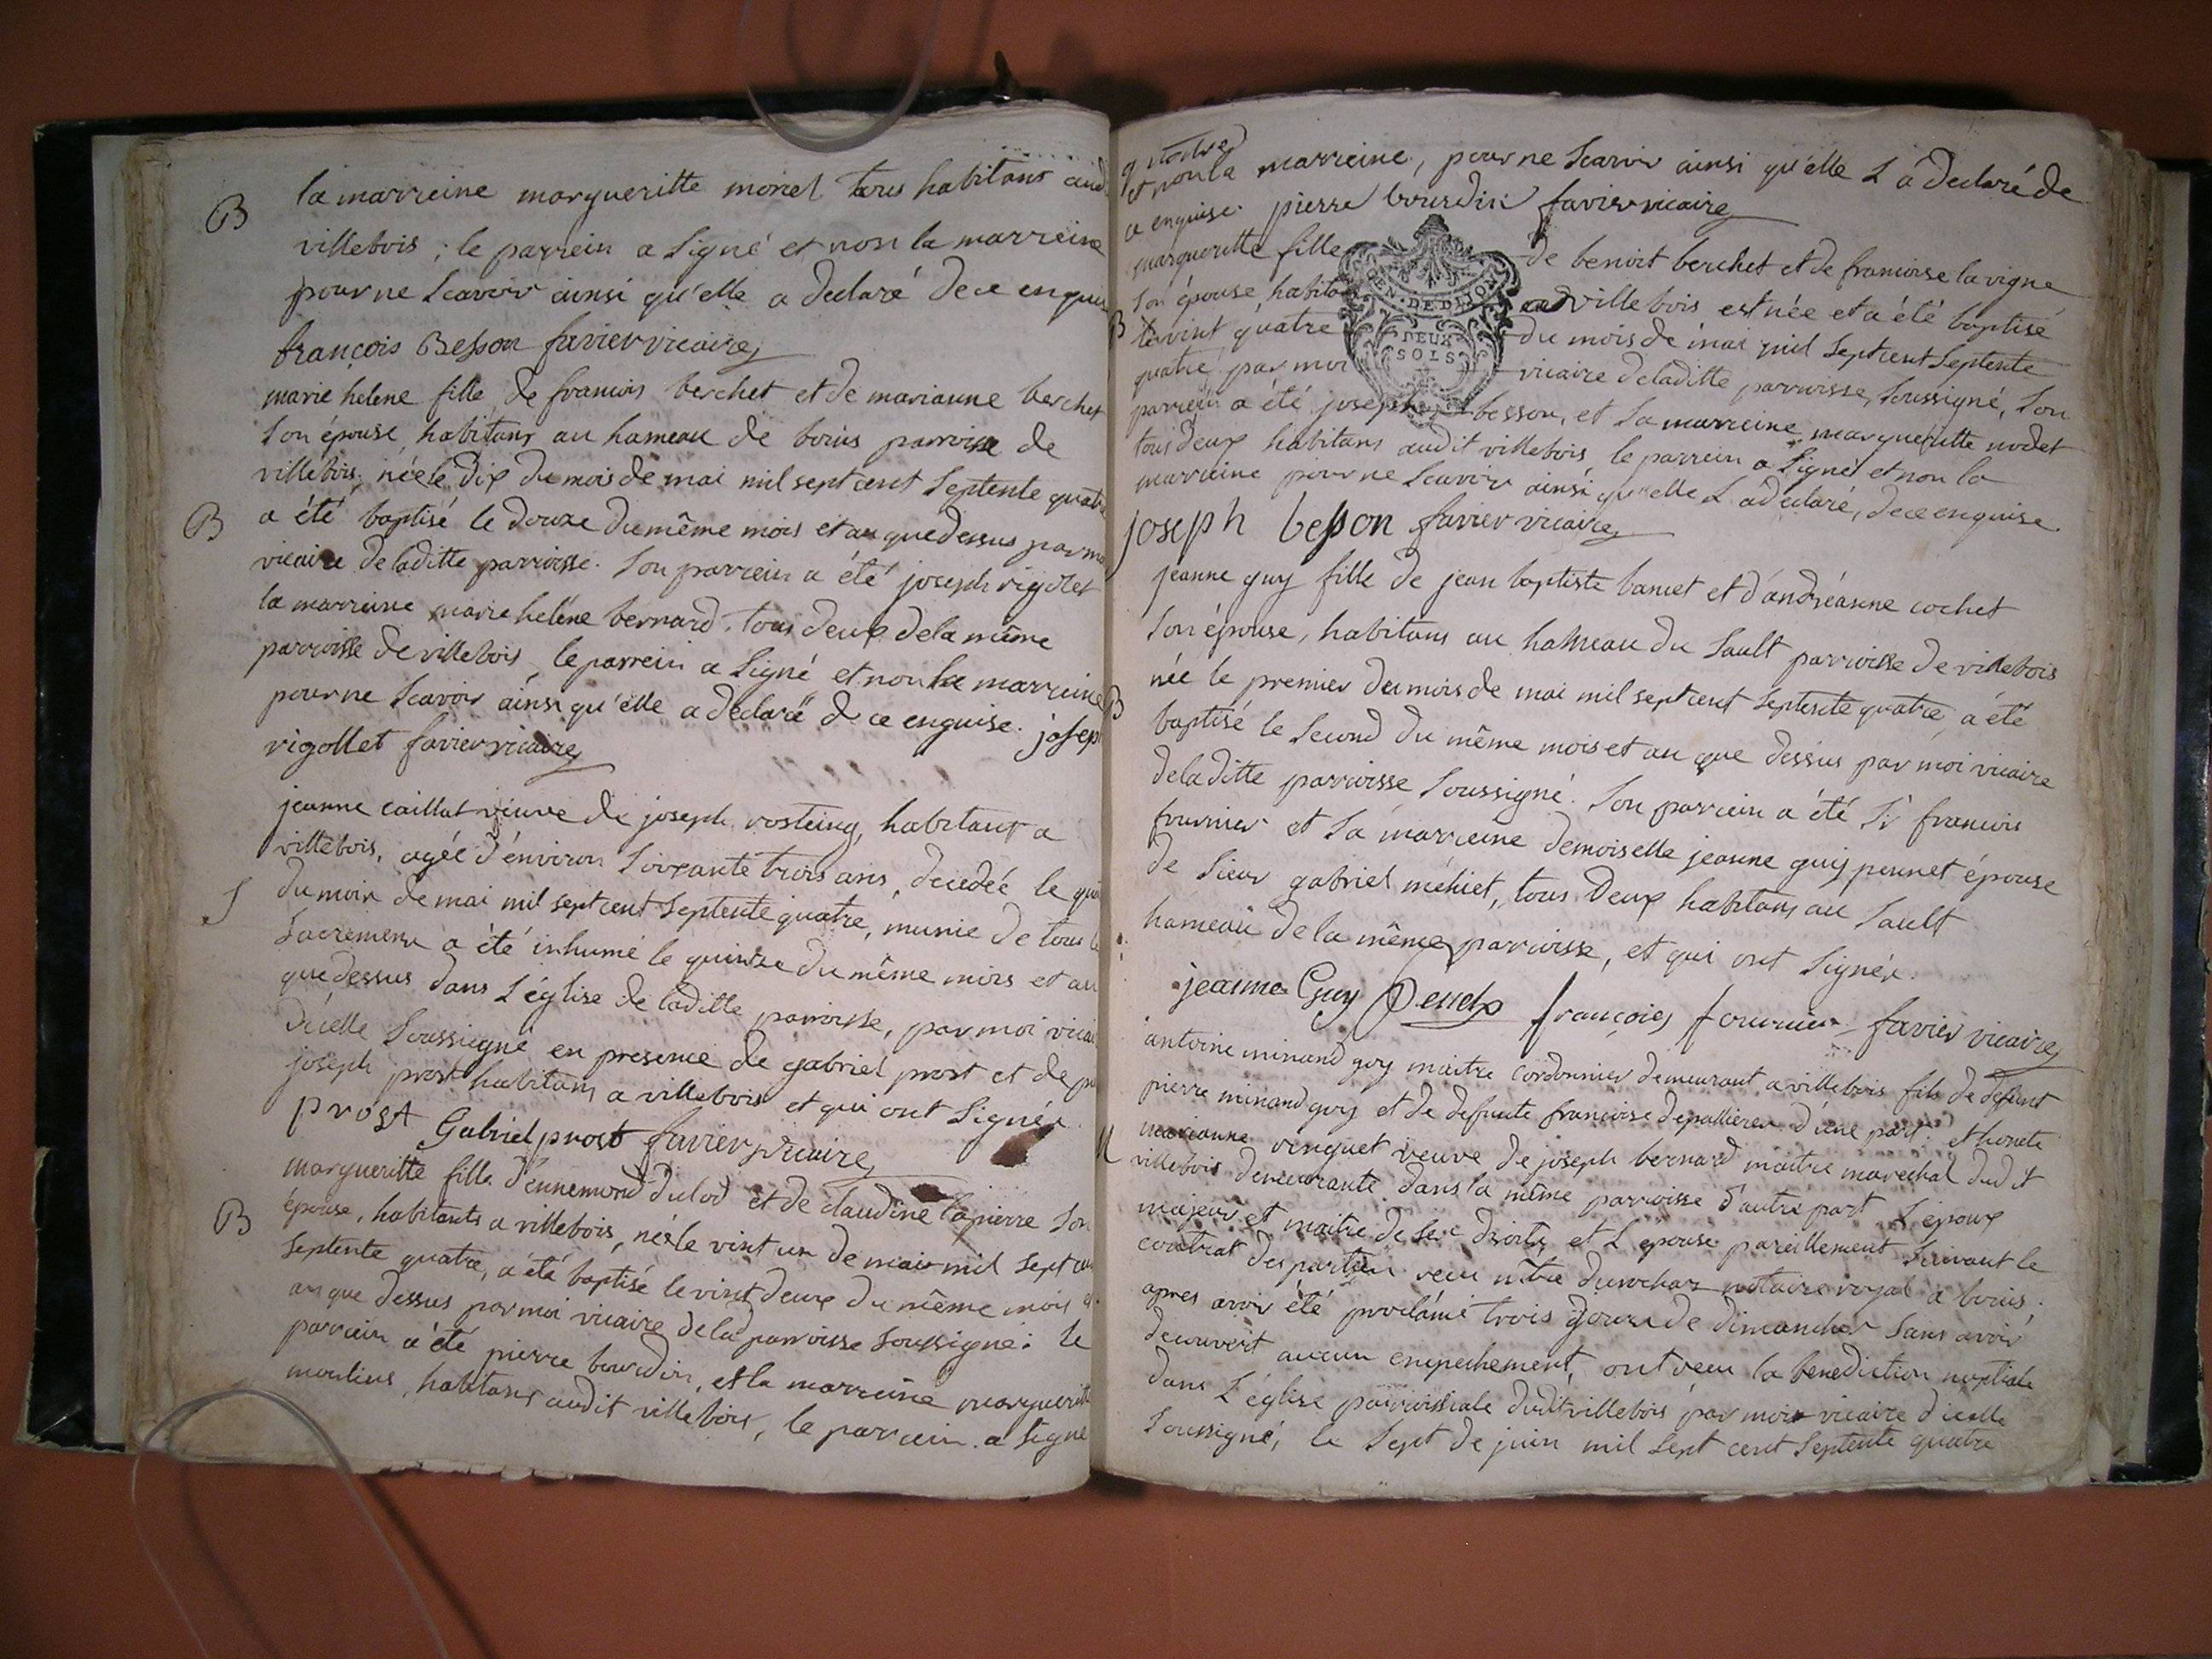 B
la marreine margueritte morel tous habitans aud
villebois ; le parrein a signé et non la marreine
pour ne scavoir ainsi qu'elle a declaré de ce enquise
françois Besson favier vicaire
marie helene fille de francois berchet et de marianne berchet
son épouse habitans au hameau de bouis parroisse de
villebois, née le dix du mois de mai mil sept cent septente quatre
B
a été baptisé le douze du même mois et an que dessus par moi
vicaire de laditte parroisse. son parrein a été joseph rigolet
la marreine marie heléne bernard. tous deux de la même
parroisse de villebois, le parrein a signé et non la marreine
pour ne scavoir ainsi qu'elle a declaré de ce enquise. joseph
rigollet favier vicaire
jeanne caillat veuve de joseph rosteing, habitant a
villebois, agée d'environ soixante trois ans, decedée le
S
du mois de mai mil sept cent septente quatre, munie de tous
sacremens a été inhumé le quinze du même mois et an
que dessus dans l'église de laditte parroisse, par moi vicai
d'icelle soussigné en presence de gabriel prost et de
joseph prost habitans a villebois et qui ont signés.
prost Gabriel prost favier vicaire
margueritte fille d'ennemond dulod et de claudine lapierre son
B
épouse, habitants a villebois, née le vint un de mai mil sept cent
septente quatre, a été baptisé le vint deux du même mois et
an que dessus par moi vicaire de lad parroisse soussigné: le
parrein a été pierre bourdin, et la marreine margueritte
moulins, habitans audit villebois, le parrein a signé
et non la marreine, pour ne scavoir ainsi qu'elle l'a declaré de
ce enquise. pierre bourdin favier vicaire
GEN. DE DIJON
DEUX
SOLS
margueritte fille de benoit berchet et de francoise lavigne
son épouse, habitans aud villebois est née et a été baptisé
B
le vint quatre du mois de mai mil sept cent septente
quatre, par moi vicaire de laditte parroisse, soussigné, son
parrein a été joseph besson, et sa marreine margueritte nodet
tous deux habitans audit villebois le parrein a signé et non la
marreine pour ne scavoir ainsi qu'elle l'a declaré, de ce enquise.
joseph besson favier vicaire
jeanne guy fille de jean baptiste bancet et d'andréanne cochet
son épouse, habitans au hameau du sault parroisse de villebois
B
née le premier du mois de mai mil sept cent septente quatre, a été
baptisé le second du même mois et an que dessus par moi vicaire
de laditte parroisse soussigné. son parrein a été Sr francois
fournier et sa marreine demoiselle jeanne guy pennet épouse
de sieur gabriel méhiet, tous deux habitans au sault
hameau de la même parroisse, et qui ont signés.
jeanne Guy françois fournier favier vicaire
antoine minand guy maitre cordonnier demeurant a villebois fils de defunt
pierre minand guy et de defunte francoise depallieres d'une part: et honete
M
marianne vinquet veuve de joseph bernard maitre marechal dudit
villebois demeurante dans la même parroisse d'autre part. l'epoux
majeur et maitre de ses droits, et l'épouse pareillement suivant le
contrat des parties recu notaire royal a bouis.
apres avoir été proclamé trois jours de dimanches sans avoir
decouvert aucun empechement, ont recu la benediction nuptiale
dans l'église parroissiale dudit villebois par moi vicaire d'icelle
soussigné, le sept de juin mil sept cent septente quatre